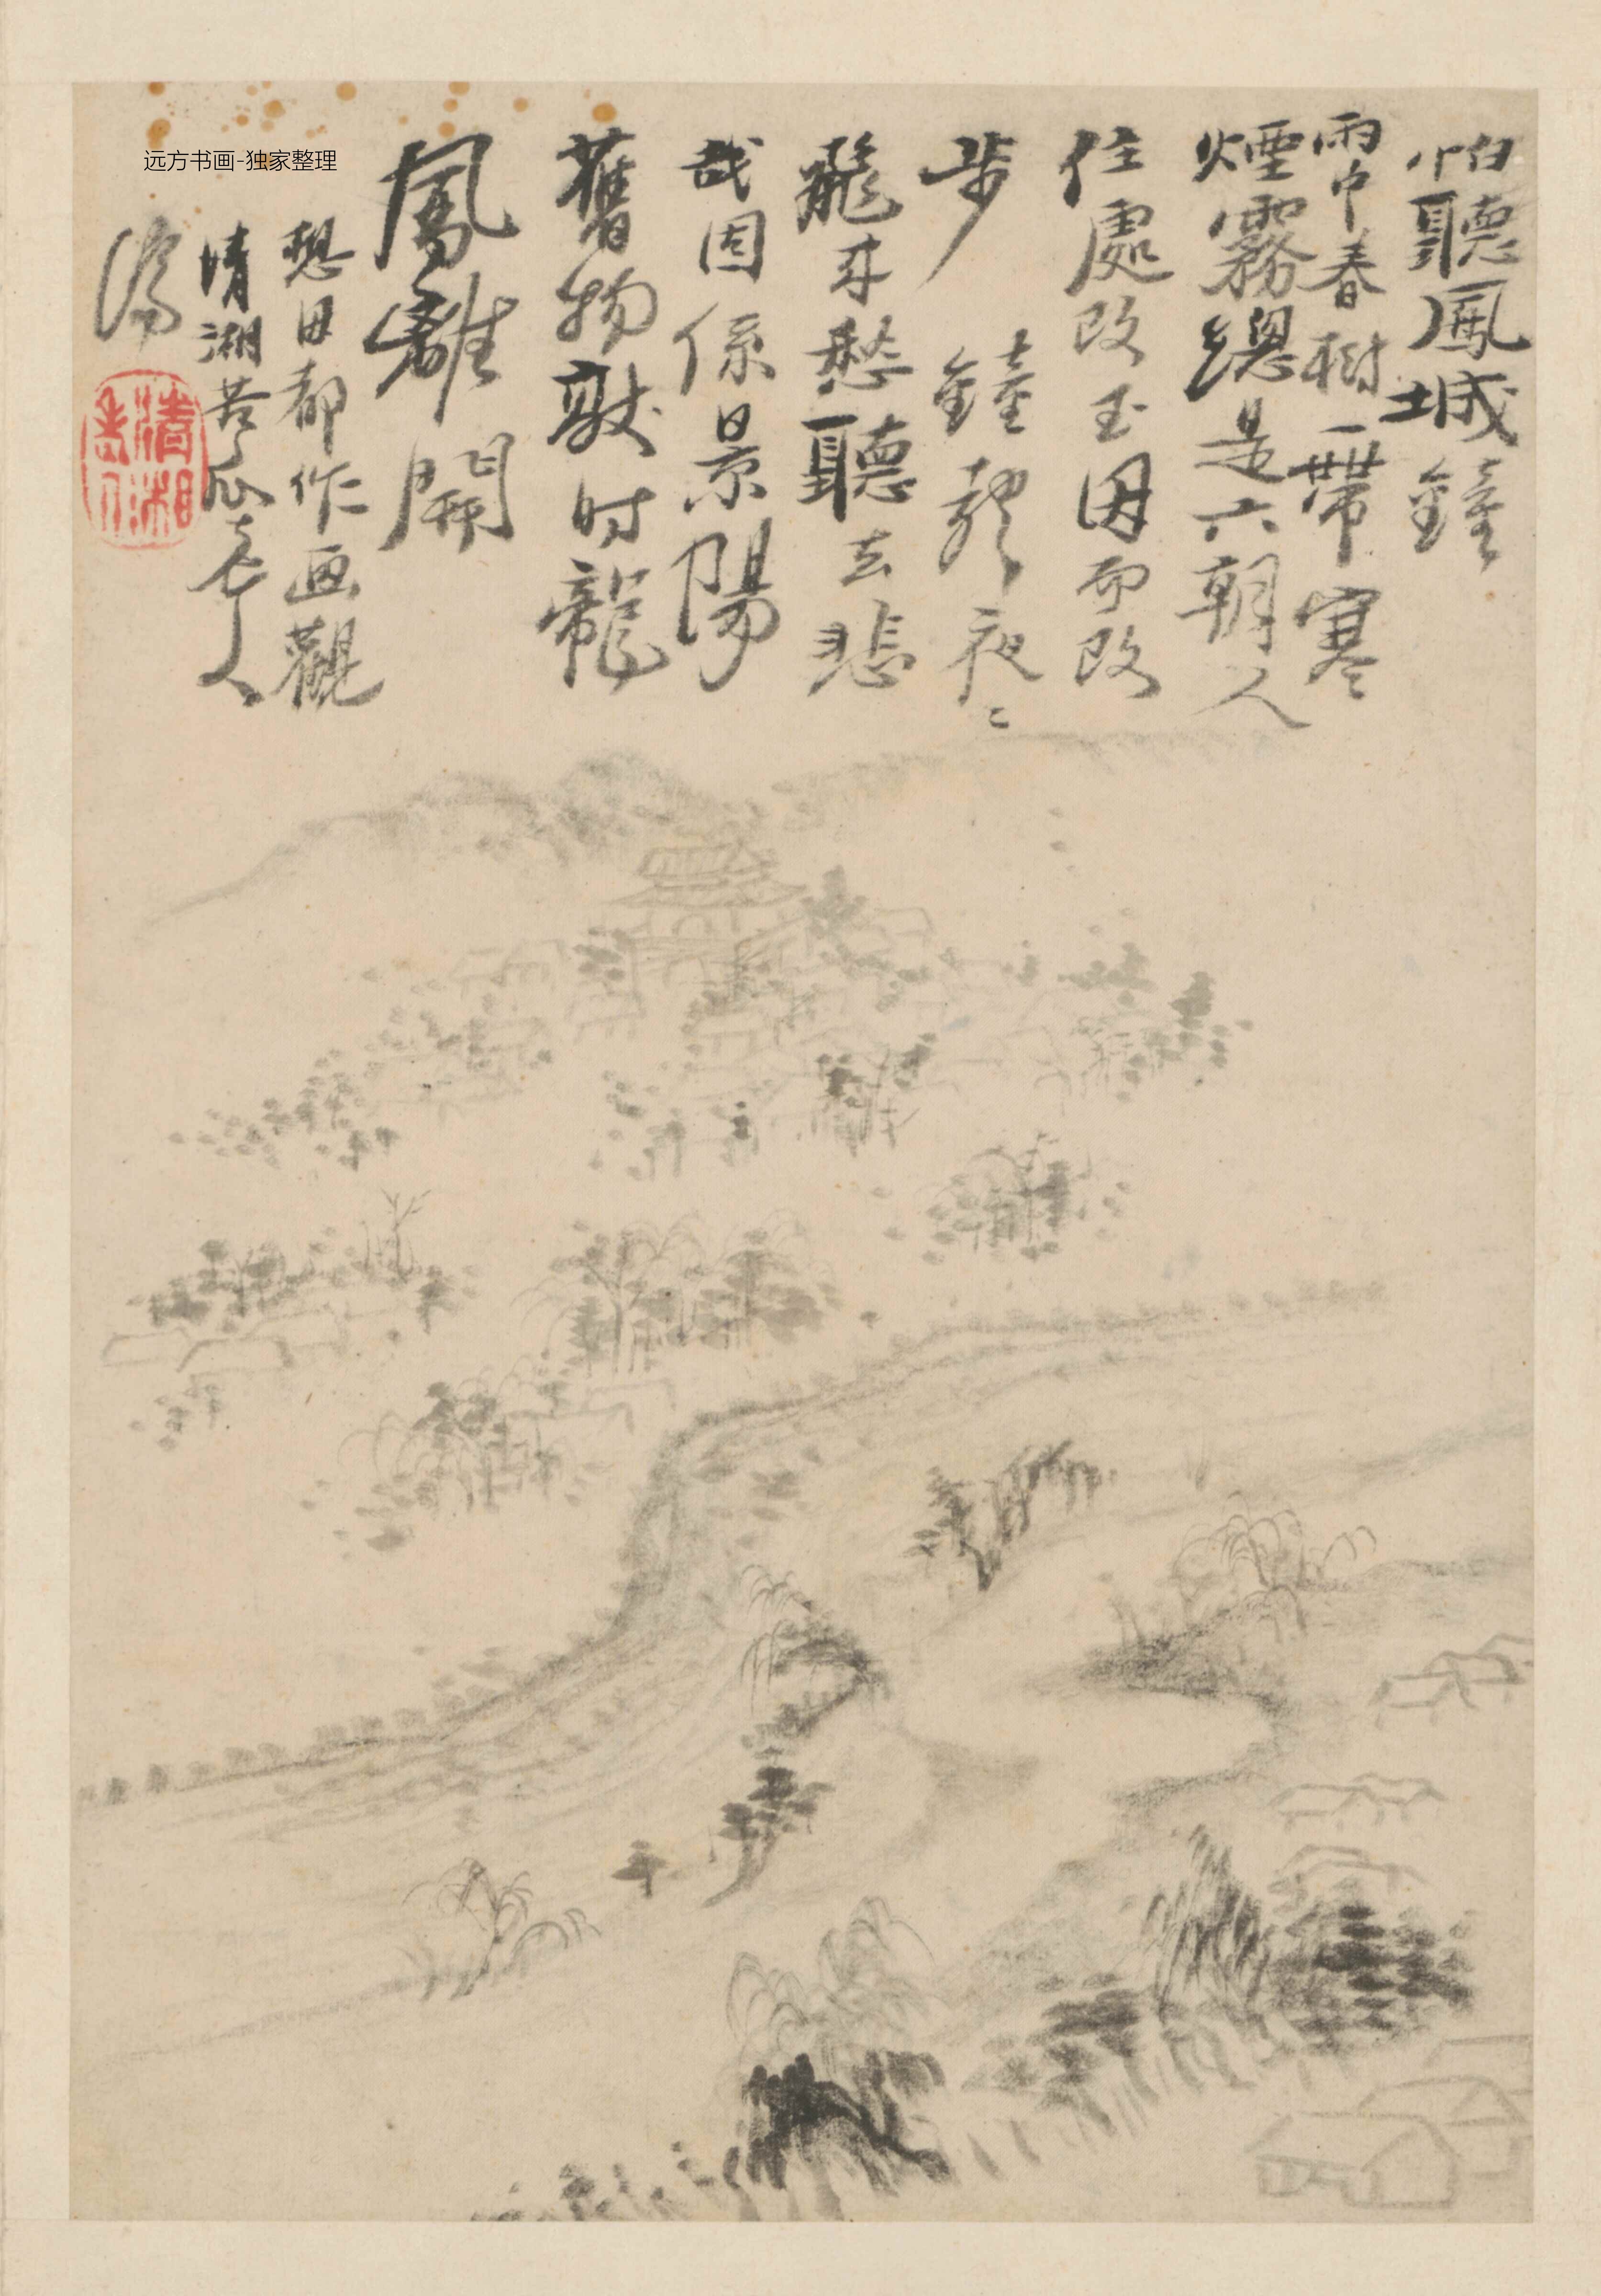 怕聽鳳城鐘
雨中春樹一帶寒
煙霧總是六朝人
住處改玉因而改
步鐘聲夜〻
飛來愁聽去悲
哉因係景陽
舊物时龍
鳳離開
想都作画觀
清湘苦瓜老人
濟
清湘老人
远方书画-独家整理